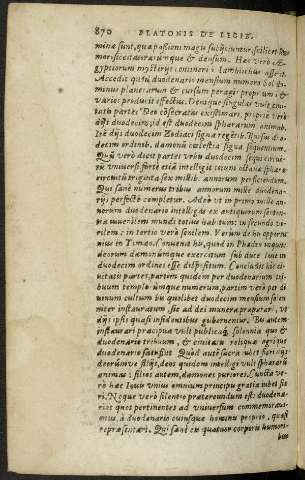 870 PLATONIS DE LEGIB.
minæ sunt, quæ passioni magis
mor, siccitas, rarumque & densum. Hæc verò Æ-
gyptiorum mysterijs contineri Iamblichus asserit.
Accedit quòd duodenario mensium numero Sol
minus planetarum & cursum peragit proprium &
varios producit effectus. Denique singulas vult
tatis partes Deo consecratas existimari, proprie verò
dijs duodecim, id est duodecim sphærarum animis.
Itē dijs duodecim Zodiaci signa regētib. Rursus duo-
decim ordinib. dæmonū cælestia signa sequentium.
Quòd verò dicit partes urbis duodecim sequi circui-
tū universi, fortè etiā intelligit
circuitū triginta sex millib. annorum perficiendum.
Qui sanè numerus tribus annorum mille duodena-
rijs perfectè completur. Adeò ut in primo mille an-
norum duodenario intelligas ex
tia iuvenilem mundi totius habitum: in secundo vi-
rilem: in tertio verò senilem. Verùm de his opportu-
nius in Timæo. Convenit his, quod in Phædro inquit:
deorum dæmonúmque exercitum sub duce Iove in
duodecim ordines esse dispositum. Concludit hîc ci-
vitatis partes, partim quidem per duodenarium tri-
buum templorúmque numerum, partim verò per di-
vinum cultum his quolibet duodecim mensium solen-
niter instauratum, se ad dei munera præparari, ut
dijs ipsis quasi insidentibus gubernentur. Bis autem
instaurari præcipua vult publicaque solennia qui &
duodenario tribuum, & civitatis reliquæ agrique
duodenario satisfiat. Quòd autē sacra iubet fieri dijs
deorúmve filijs, deos quidem intellige vult sphærarū
animas: filios autem, dæmones puriores. Cuncta ve-
rò hæc Iovis unius omnium principis gratia iubet fie-
ri. Neque verò silentio prætereundum est: duodena-
rios quos pertinentes ad universum commemoravi-
mus, à duodenario cuiusque hominis proprio, quasi
repræsentari. Qui sanè ex quatuor corporis humori-
bus